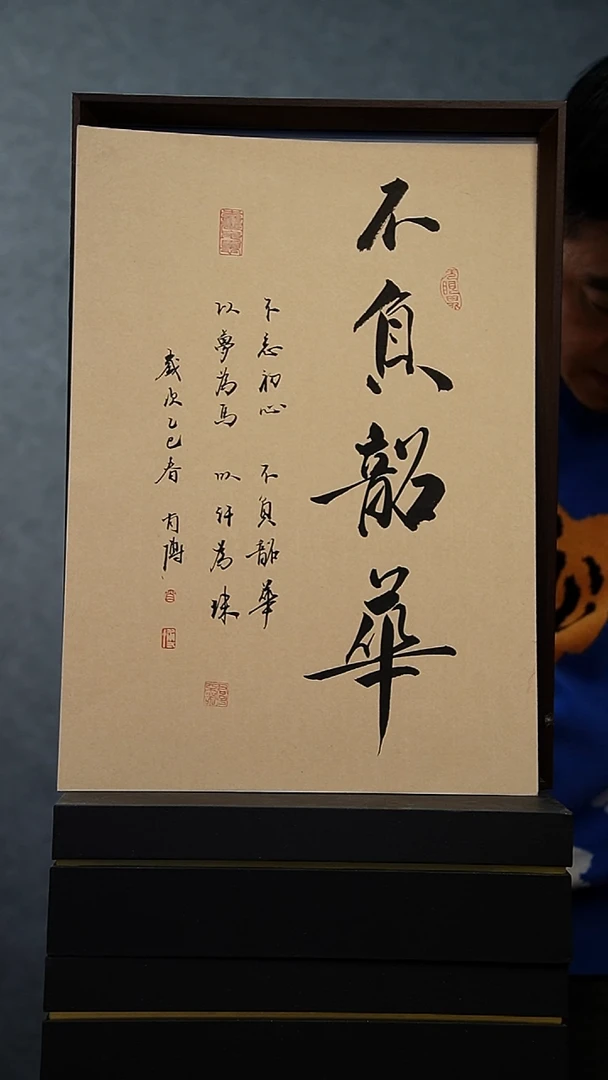 不負韶華
不忘初心 不負韶華
以夢為馬 以汗為珠
歲次乙巳春